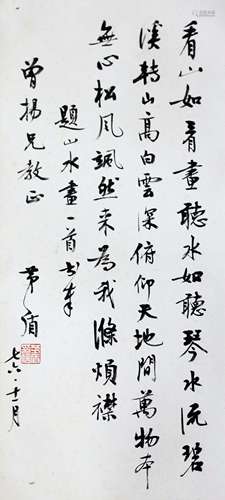 看山如看畫聽水如聽琴水流碧
溪轉山高白雲深俯仰天地間萬物本
無心松風颯然来為我滌煩襟
題山水畫一首書奉
曾揚兄教正
茅盾
七六·十一月